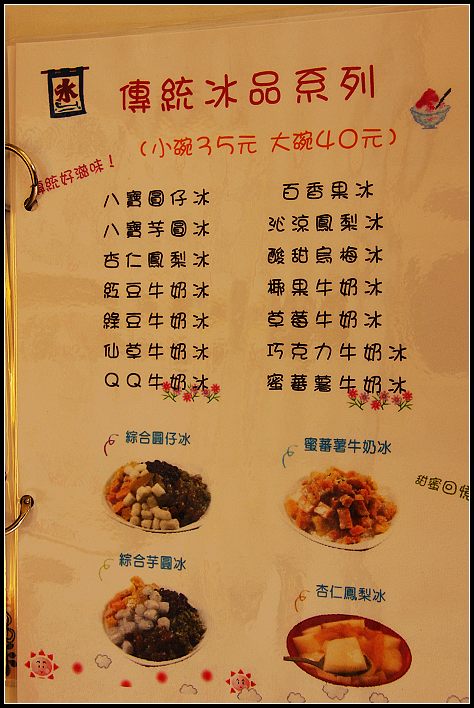 氷
傳統冰品系列
(小碗35元 大碗40元)
傳統好滋味！
八寶圓仔冰
八寶芋圓冰
杏仁鳳梨冰
紅豆牛奶冰
綠豆牛奶冰
仙草牛奶冰
QQ牛奶冰
百香果冰
沁涼鳳梨冰
酸甜烏梅冰
椰果牛奶冰
草莓牛奶冰
巧克力牛奶冰
蜜蕃薯牛奶冰
綜合圓仔冰
蜜蕃薯牛奶冰
甜蜜回憶
綜合芋圓冰
杏仁鳳梨冰